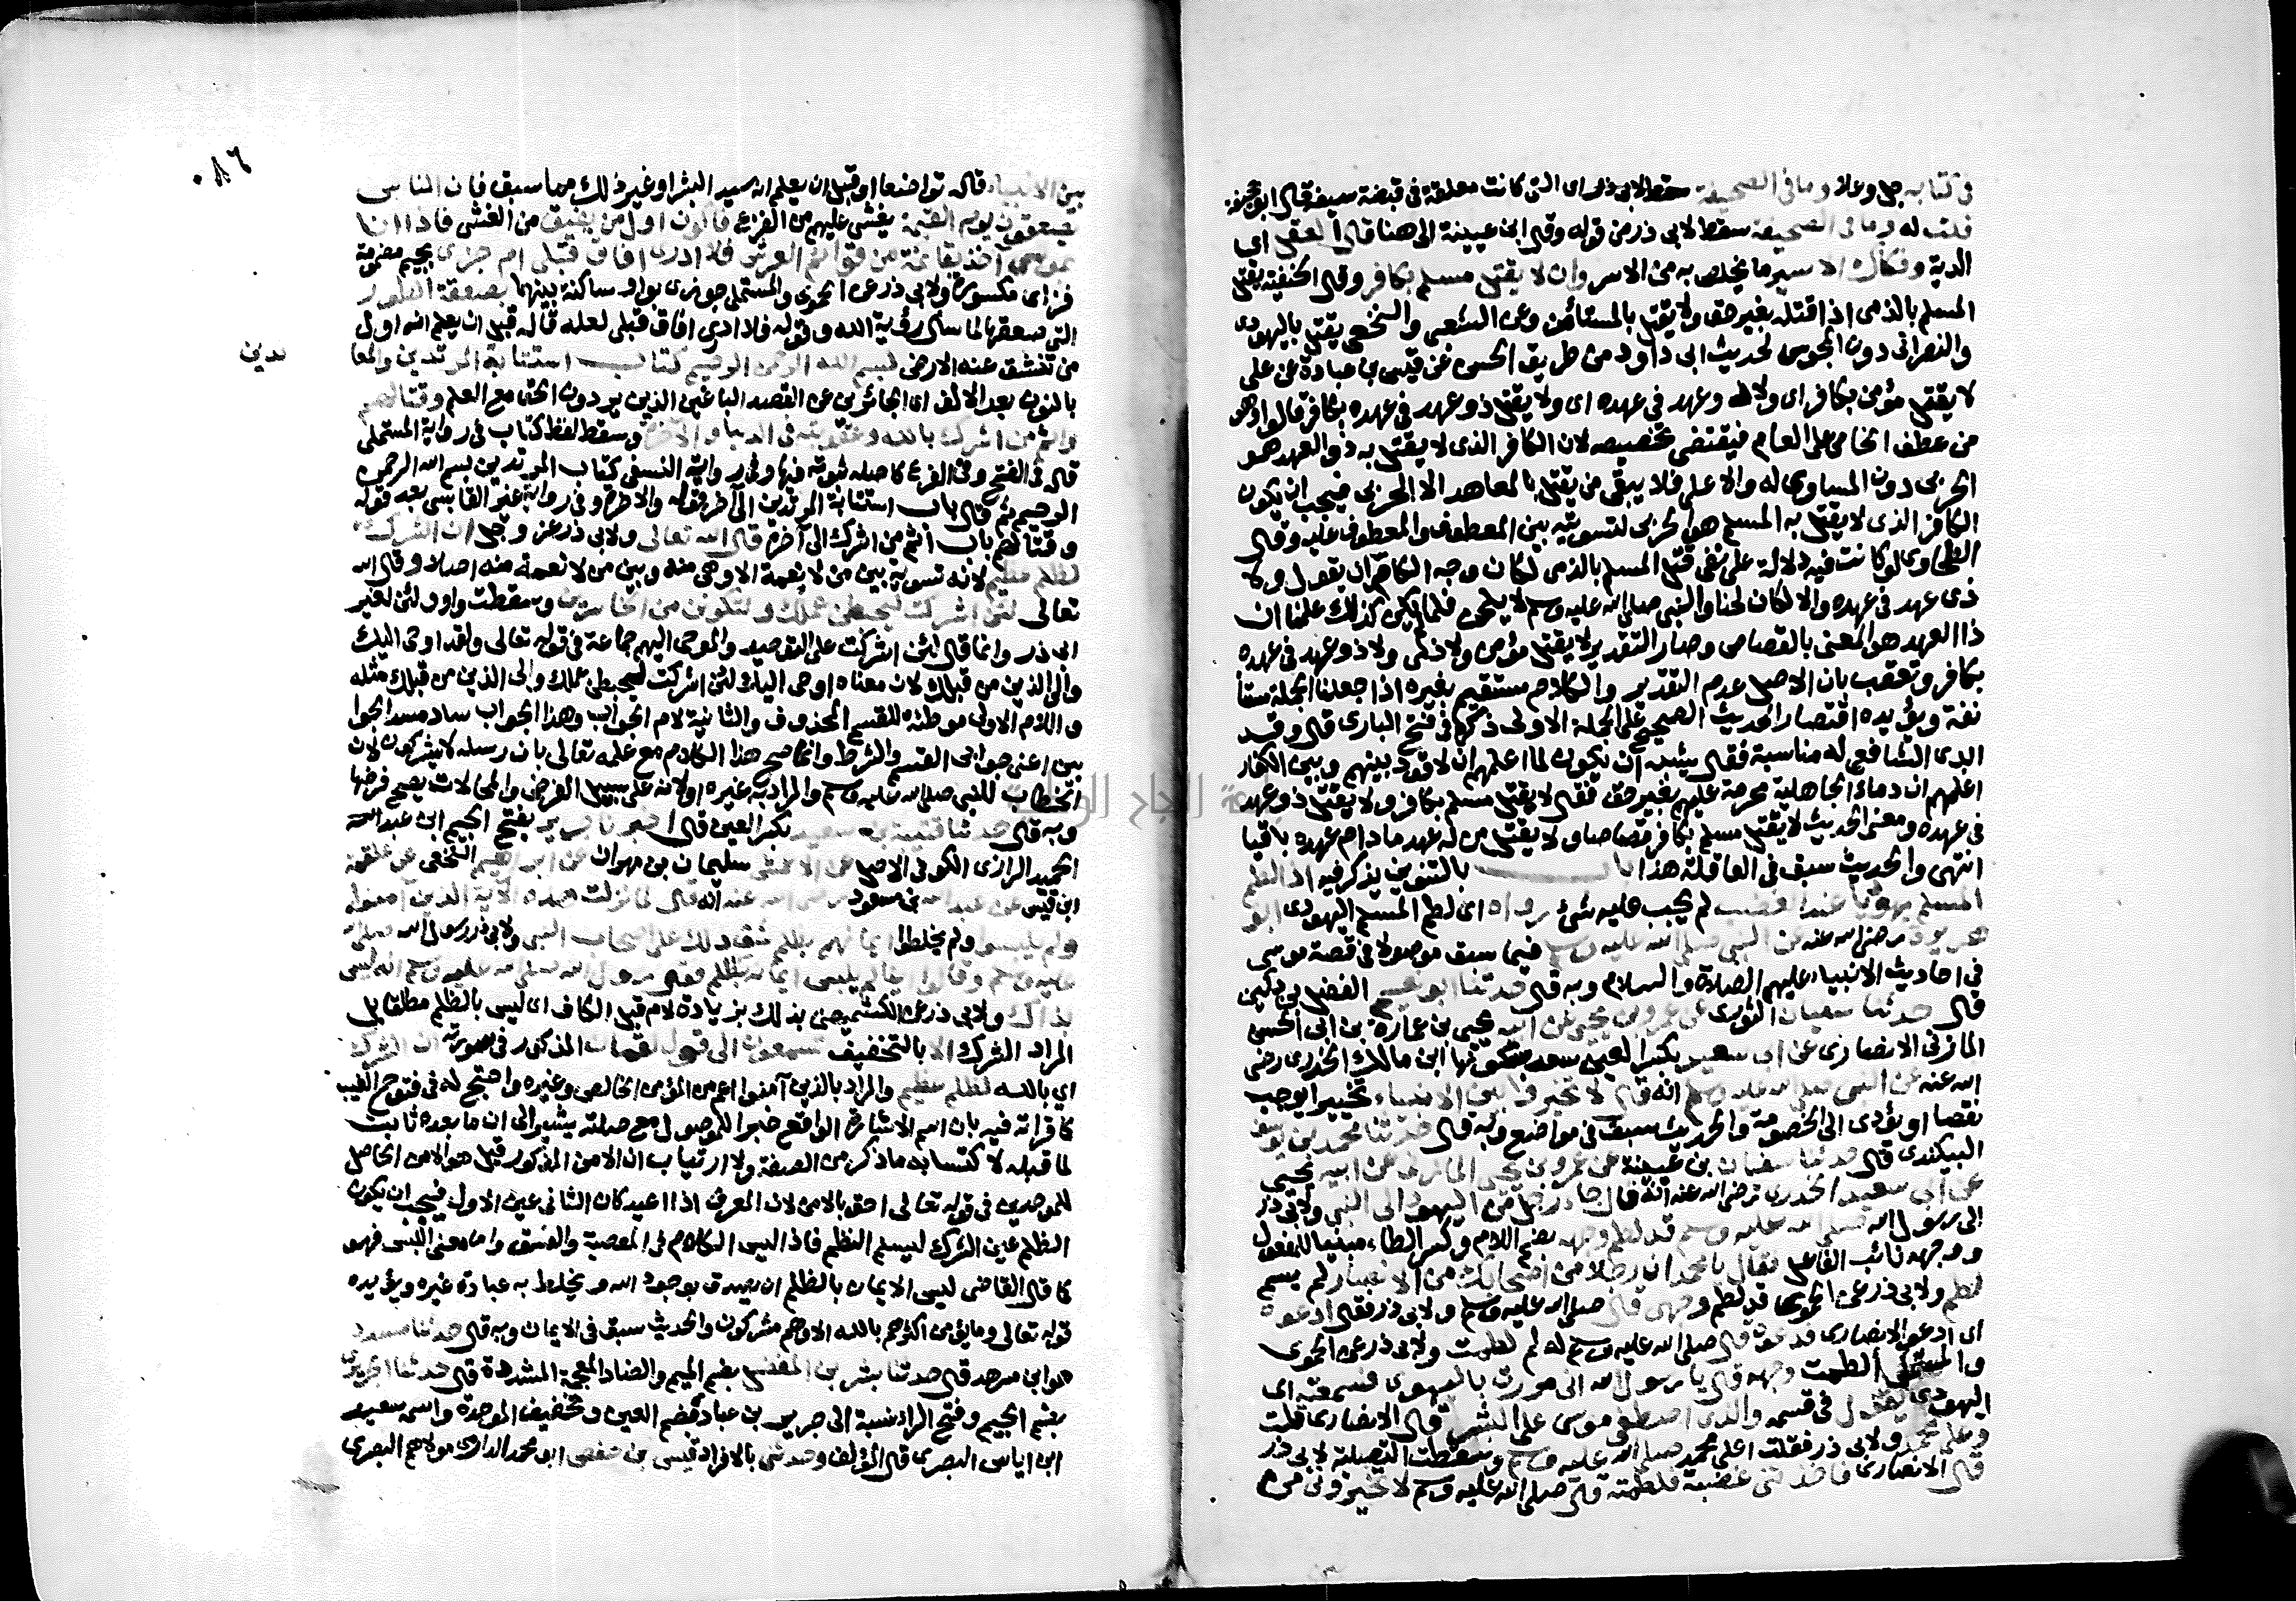 في كتابه جل وعلا وما في الصحيفة سقط لابي ذر اي التي كانت معلقة في قبضة سيفه قال ابو جحيفة
قلت له وما في الصحيفة سقط لابي ذر من قوله وقال ابن عيينة الى هنا قال العقل اي
الدية وفكاك الاسير ما يخلص به من الاسر وان لا يقتل مسلم بكافر وقال الحنفية يقتل
المسلم بالذمي اذا قتله بغير حق ولا يقتل بالمستأمن وعن الشعبي والنخعي يقتل باليهودي
والنصراني دون المجوسي لحديث ابي داود من طريق الحسن عن قيس بن عبادة عن علي
لا يقتل مؤمن بكافر اي ولا ذو عهد في عهده اي ولا يقتل ذو عهد في عهده بكافر قالوا وهو
من عطف الخاص على العام فيقتضي تخصيصه لان الكافر الذي لا يقتل به ذو العهد هو
الحربي دون المساوي له والاعلى فلا يبقى من يقتل بالمعاهد الا الحربي فيجب ان يكون
الكافر الذي لا يقتل به المسلم هو الحربي لتسوية بين المعطوف والمعطوف عليه وقال
الطحاوي لو كانت فيه دلالة على نفي قتل المسلم بالذمي لكان وجه الكلام ان يقول ولا
ذي عهد في عهده والا لكان لحنا والنبي صلى الله عليه وسلم لا يلحن فلما لم يكن كذلك علمنا ان
ذا العهد هو المعني بالقصاص وصار التقدير لا يقتل مؤمن ولا ذمي ولا ذو عهد في عهده
بكافر وتعقب بان الاصل عدم التقدير والكلام مستقيم بغيره اذا جعلنا الجملة مستأ
نفة ويؤيده اقتصار الحديث الصحيح على الجملة الاولى ذكره في فتح الباري قال وقد
ابدى الشافعي له مناسبة فقال يشبه ان يكون لما اعلمهم ان لا قود بينهم وبين الكفار
اعلمهم ان دماء الجاهلية محرمة عليهم بغير حق فقال لا يقتل مسلم بكافر ولا يقتل ذو عهد
في عهده ومعنى الحديث لا يقتل مسلم بكافر قصاصا ولا يقتل من له عهد ما دام عهده باقيا
انتهى والحديث سبق في العاقلة هذا باب بالتنوين يذكر فيه اذا لطم
المسلم يهوديا عند الغضب لم يجب عليه شئ رواه اي لطم المسلم اليهودي ابو
هريرة رضي الله عنه عن النبي صلى الله عليه وسلم فيما سبق موصولا في قصة موسى
في احاديث الانبياء عليهم الصلاة والسلام وبه قال حدثنا ابو نعيم الفضل بن دكين
قال حدثنا سفيان الثوري عن عمرو بن يحيى عن ابيه يحيى بن عمارة بن ابي الحسن
المازني الانصاري عن ابي سعيد بكسر العين سعد بسكونها ابن مالك الخدري رضي
الله عنه عن النبي صلى الله عليه وسلم انه قال لا تخيروا بين الانبياء تخييرا يوجب
نقصا او يؤدي الى الخصومة والحديث سبق في مواضع وبه قال حدثنا محمد بن يوسف
البيكندي قال حدثنا سفيان بن عيينة عن عمرو بن يحيى المازني عن ابيه يحيى
عن ابي سعيد الخدري رضي الله عنه انه قال جاء رجل من اليهود الى النبي ولابي ذر
الى رسول الله صلى الله عليه وسلم قد لطم وجهه بضم اللام وكسر الطاء مبنيا للمفعول
ووجهه نائب الفاعل فقال يا محمد ان رجلا من اصحابك من الانصار لم يسم
لطم ولابي ذر عن الحموي قد لطم وجهي قال صلى الله عليه وسلم ولابي ذر فقال ادعوه
اي ادعوا الانصاري فدعوه قال صلى الله عليه وسلم له لم لطمت ولابي ذر عن الحموي
والمستملي الطمت وجهه قال يا رسول الله اني مررت باليهودي فسمعته اي
اليهودي يقول في قسمه والذي اصطفى موسى على البشر قال الانصاري قلت
وعلى محمد ولابي ذر فقلت اعلى محمد صلى الله عليه وسلم وسقطت التصلية لابي ذر
قال الانصاري فاخذتني غضبة فلطمته قال صلى الله عليه وسلم لا تخيروني من
٠٨٦
بين الانبياء قاله تواضعا او قبل ان يعلم انه سيد البشر او غير ذلك مما سبق فان الناس
يصعقون يوم القيمة يغشى عليهم من الفزع فاكون اول من يفيق من الغشي فاذا انا
بموسى آخذ بقائمة من قوائم العرش فلا ادري افاق قبلي ام جزي بجيم مضمومة
فزاي مكسورة ولابي ذر عن الحموي والمستملي جوزي بواو ساكنة بينهما بصعقة الطور
التي صعقها لما سأل رؤية الله وقوله فلا ادري افاق قبلي لعله قاله قبل ان يعلم انه اول
من تنشق عنه الارض بسم الله الرحمن الرحيم كتاب استتابة المرتدين والمعا
ندين
بالنون بعد الالف اي الجائرين عن القصد الباغين الذين يردون الحق مع العلم وقتالهم
واثم من اشرك بالله وعقوبته في الدنيا والآخرة وسقط لفظ كتاب في رواية المستملي
قاله في الفتح وفي الفرع كاصله ثبوته فيها وفي رواية النسفي كتاب المرتدين بسم الله الرحمن
الرحيم ثم قال باب استتابة المرتدين الى آخر قوله والآخرة وفي رواية غير القابسي بعد قوله
وقتالهم باب اثم من اشرك الى آخره قال الله تعالى ولابي ذر عز وجل ان الشرك
لظلم عظيم لانه تسوية بين من لا نعمة الا وهي منه وبين من لا نعمة منه اصلا وقال الله
تعالى لئن اشركت ليحبطن عملك ولتكونن من الخاسرين وسقطت واو ولئن لغير
ابي ذر وانما قال لئن اشركت على التوحيد والموحى اليهم جماعة في قوله تعالى ولقد اوحى اليك
والى الذين من قبلك لان معناه اوحى اليك لئن اشركت ليحبطن عملك والى الذين من قبلك مثله
واللام الاولى موطئة للقسم المحذوف والثانية لام الجواب وهذا الجواب ساد مسد الجوا
بين اعني جوابي القسم والشرط وانما صح هذا الكلام مع علمه تعالى بان رسله لا يشركون لان
الخطاب للنبي صلى الله عليه وسلم والمراد به غيره او لانه على سبيل الفرض والمحالات يصح فرضها
وبه قال حدثنا قتيبة بن سعيد بكسر العين قال اخبرنا جرير بفتح الجيم ابن عبد
الحميد الرازي الكوفي الاصل عن الاعمش سليمان بن مهران عن ابراهيم النخعي عن علقمة
ابن قيس عن عبد الله بن مسعود رضي الله عنه انه قال لما نزلت هذه الآية الذين آمنوا
ولم يلبسوا ولم يخلطوا ايمانهم بظلم شق ذلك على اصحاب النبي ولابي ذر رسول الله صلى الله
عليه وسلم وقالوا اينا لم يلبس ايمانه بظلم فقال رسول الله صلى الله عليه وسلم انه ليس
بذاك ولابي ذر عن الكشميهني بذلك بزيادة لام قبل الكاف اي ليس بالظلم مطلقا بل
المراد الشرك الا بالتخفيف تسمعون الى قول لقمان المذكور في سورته ان الشرك
اي بالله لظلم عظيم والمراد بالذين آمنوا اعم من المؤمن الخالص وغيره واحتج له في فتوح الغيب
كما قرأته فيه بان اسم الاشارة الواقع خبرا للموصول مع صلته يشير الى ان ما بعده ثابت
لما قبله لاكتسابه ما ذكر من الصفة ولا ارتياب ان الامن المذكور قبل هو الامن الحاصل
للموحدين في قوله تعالى احق بالامن لان المعرف اذا اعيد كان الثاني عين الاول فيجب ان يكون
الظلم عين الشرك ليسلم النظم فاذا ليس الكلام في المعصية والفسق واما معنى اللبس فهو
كما قال القاضي لبس الايمان بالظلم ان يصدق بوجود الله ويخلط به عبادة غيره ويؤيده
قوله تعالى وما يؤمن اكثرهم بالله الا وهم مشركون والحديث سبق في الايمان وبه قال حدثنا مسدد
هو ابن مسرهد قال حدثنا بشر بن المفضل بضم الميم والضاد المعجمة المشددة قال حدثنا الجريري
بضم الجيم وفتح الراء نسبة الى جرير بن عباد بضم العين وتخفيف الموحدة واسمه سعيد
ابن اياس البصري قال المؤلف وحدثني بالافراد قيس بن حفص ابو محمد الدارمي مولاهم البصري